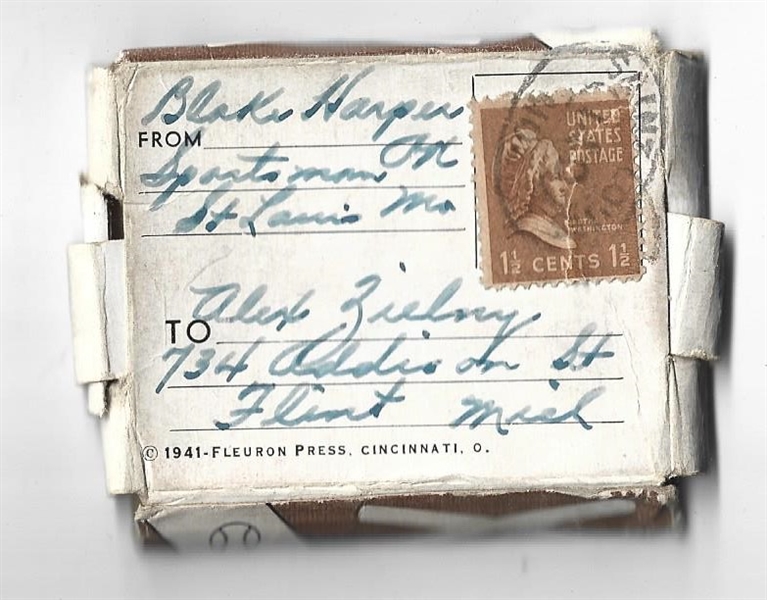 Blake Harper
FROM
Sportsman Pk
St Louis Mo
UNITED
STATES
POSTAGE
MARTHA
WASHINGTON
1½ CENTS 1½
TO Alex Zielny
734 Addison St
Flint Mich
© 1941-FLEURON PRESS, CINCINNATI, O.